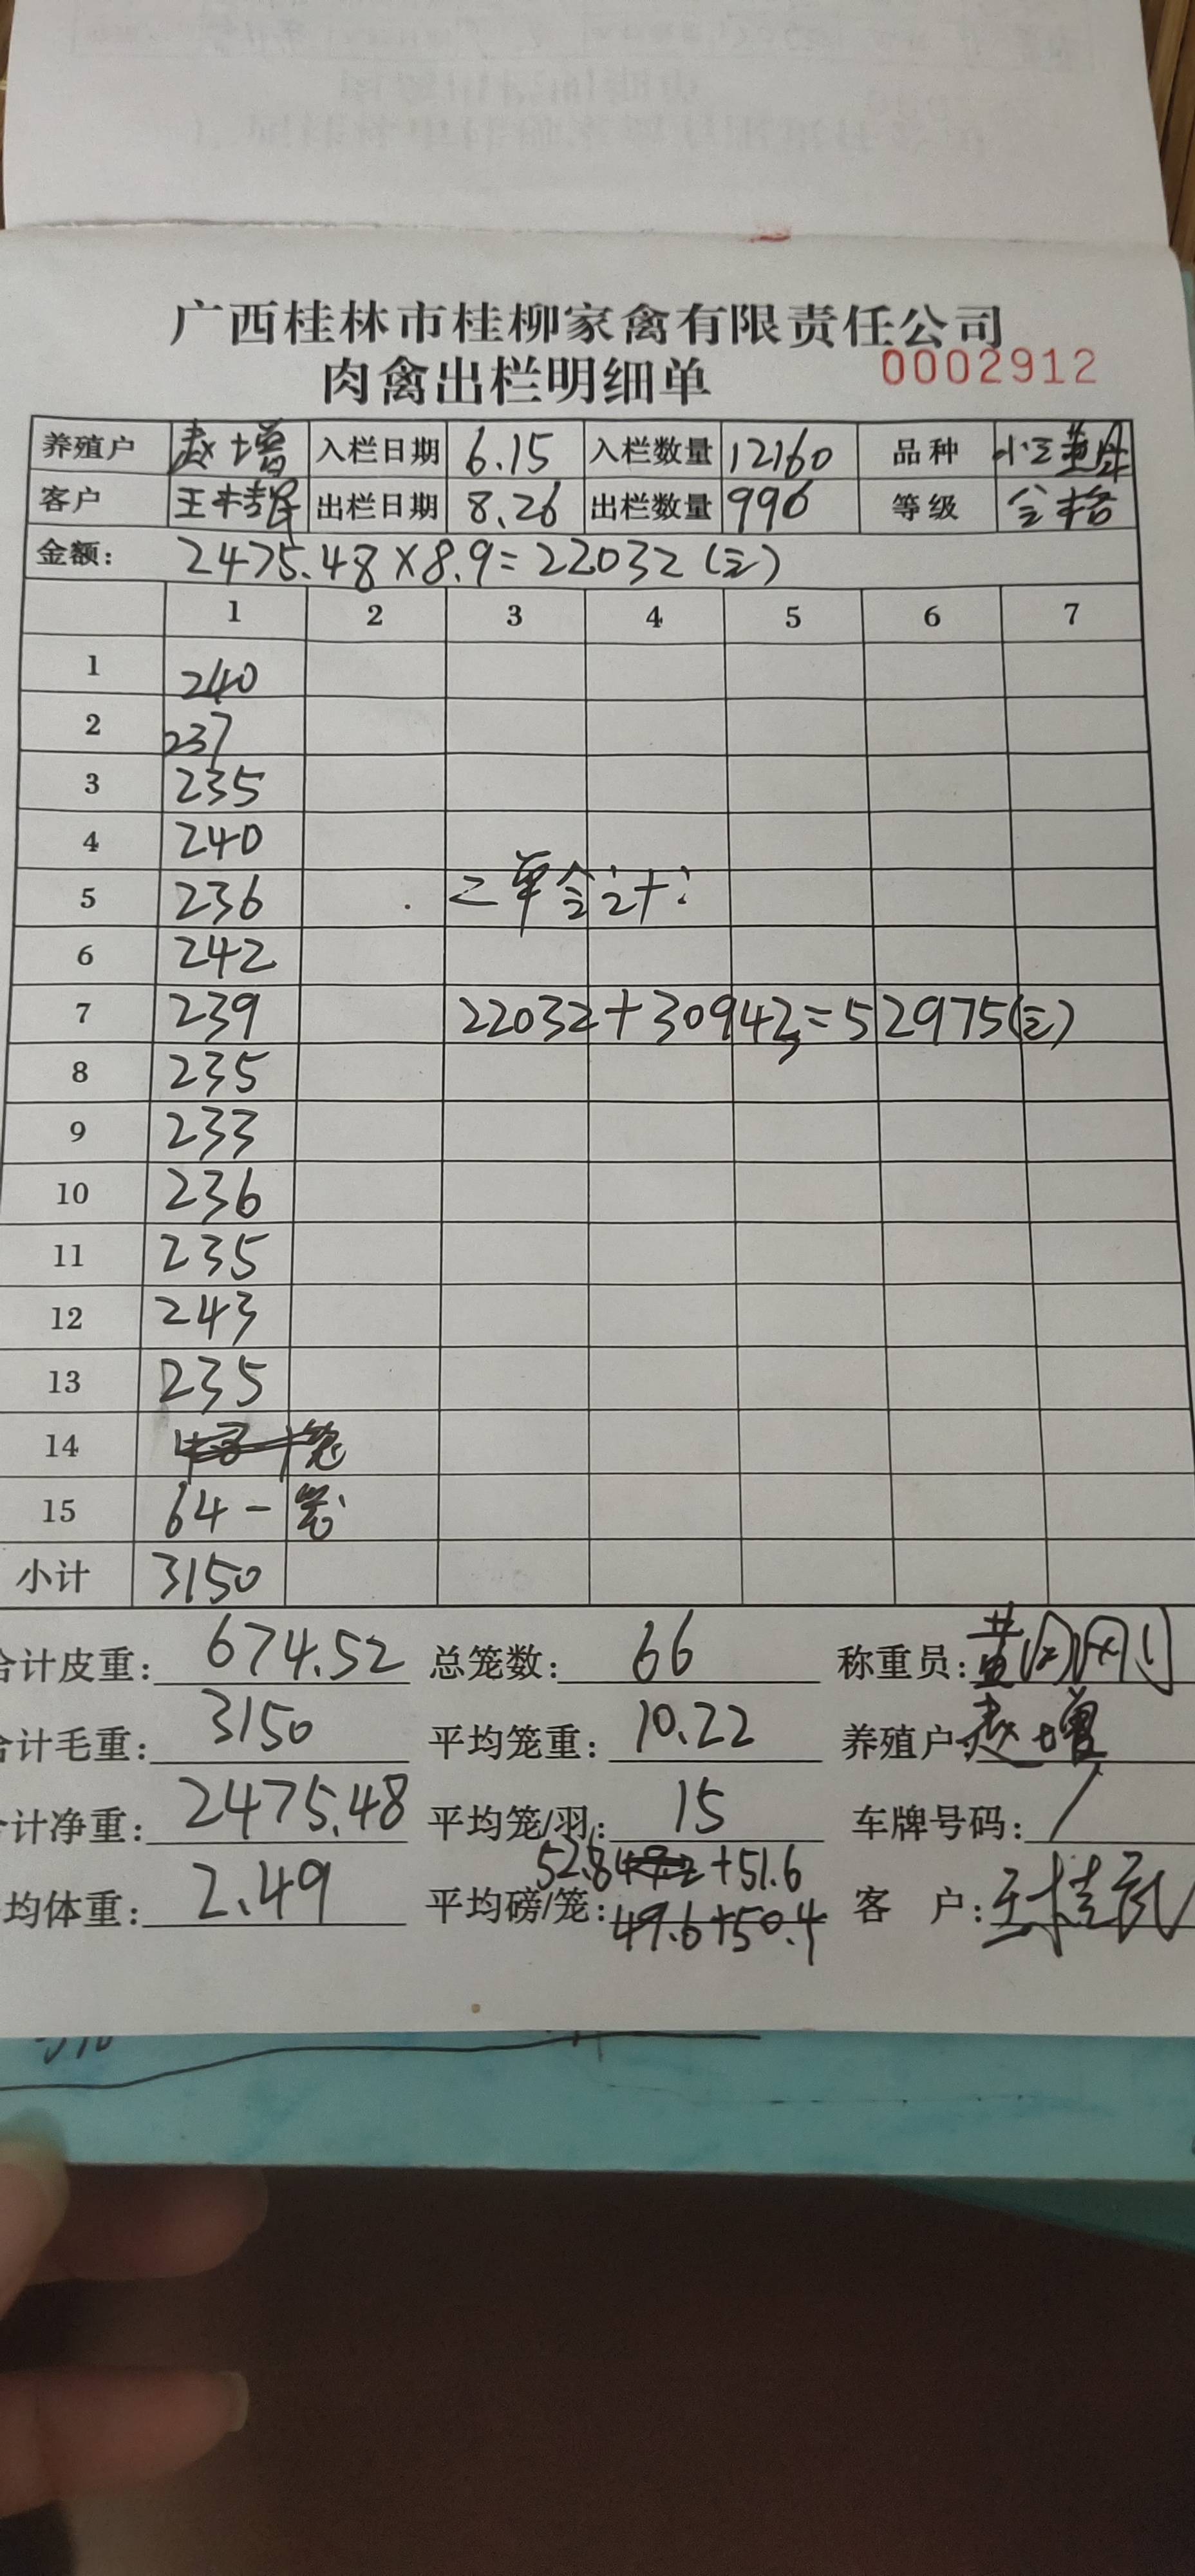 广西桂林市桂柳家禽有限责任公司
肉禽出栏明细单 0002912
养殖户 赵增 入栏日期 6.15 入栏数量 12160 品种
客户 王桂民 出栏日期 8.26 出栏数量 996 等级 合格
金额: 2475.48×8.9=22032(元)
1 2 3 4 5 6 7
1 240
2 237
3 235
4 240
5 236 二单合计:
6 242
7 239 22032+30943=52975(元)
8 235
9 233
10 236
11 235
12 243
13 235
14 笼
15 64一笼
小计 3150
合计皮重: 674.52 总笼数: 66 称重员:
合计毛重: 3150 平均笼重: 10.22 养殖户: 赵增
计净重: 2475.48 平均笼/羽: 15 车牌号码: /
52.8 +51.6
均体重: 2.49 平均磅/笼: 49.6+50.4 客 户: 王桂民